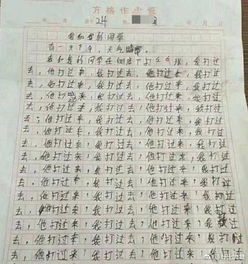 方格作文纸
24
天气晴朗。
同学在 打乒乓球,我打过
去,他打过来,我打过去,他打过来,我打过
去,他打过来!我打过去,他打过来!我打过
去,他打过来!我打过去,他打过来!我打过
去,他打过来!我打过去,他打过来!我打过
去,他打过来!我打过去,他打过来!我打过
去,他打过来!我打过去,他打过来!我打过
去,他打过来!我打过去,他打过来!我打过
去,他打过来!我打过去,他打过来!我打过
去,他打过来!我打过去,他打过来!我打过
去,他打过来!我打过去,他打过来!我打过
去,他打过来!我打过去,他打过来!我打过
去,他打过来!我打过去,他打过来!